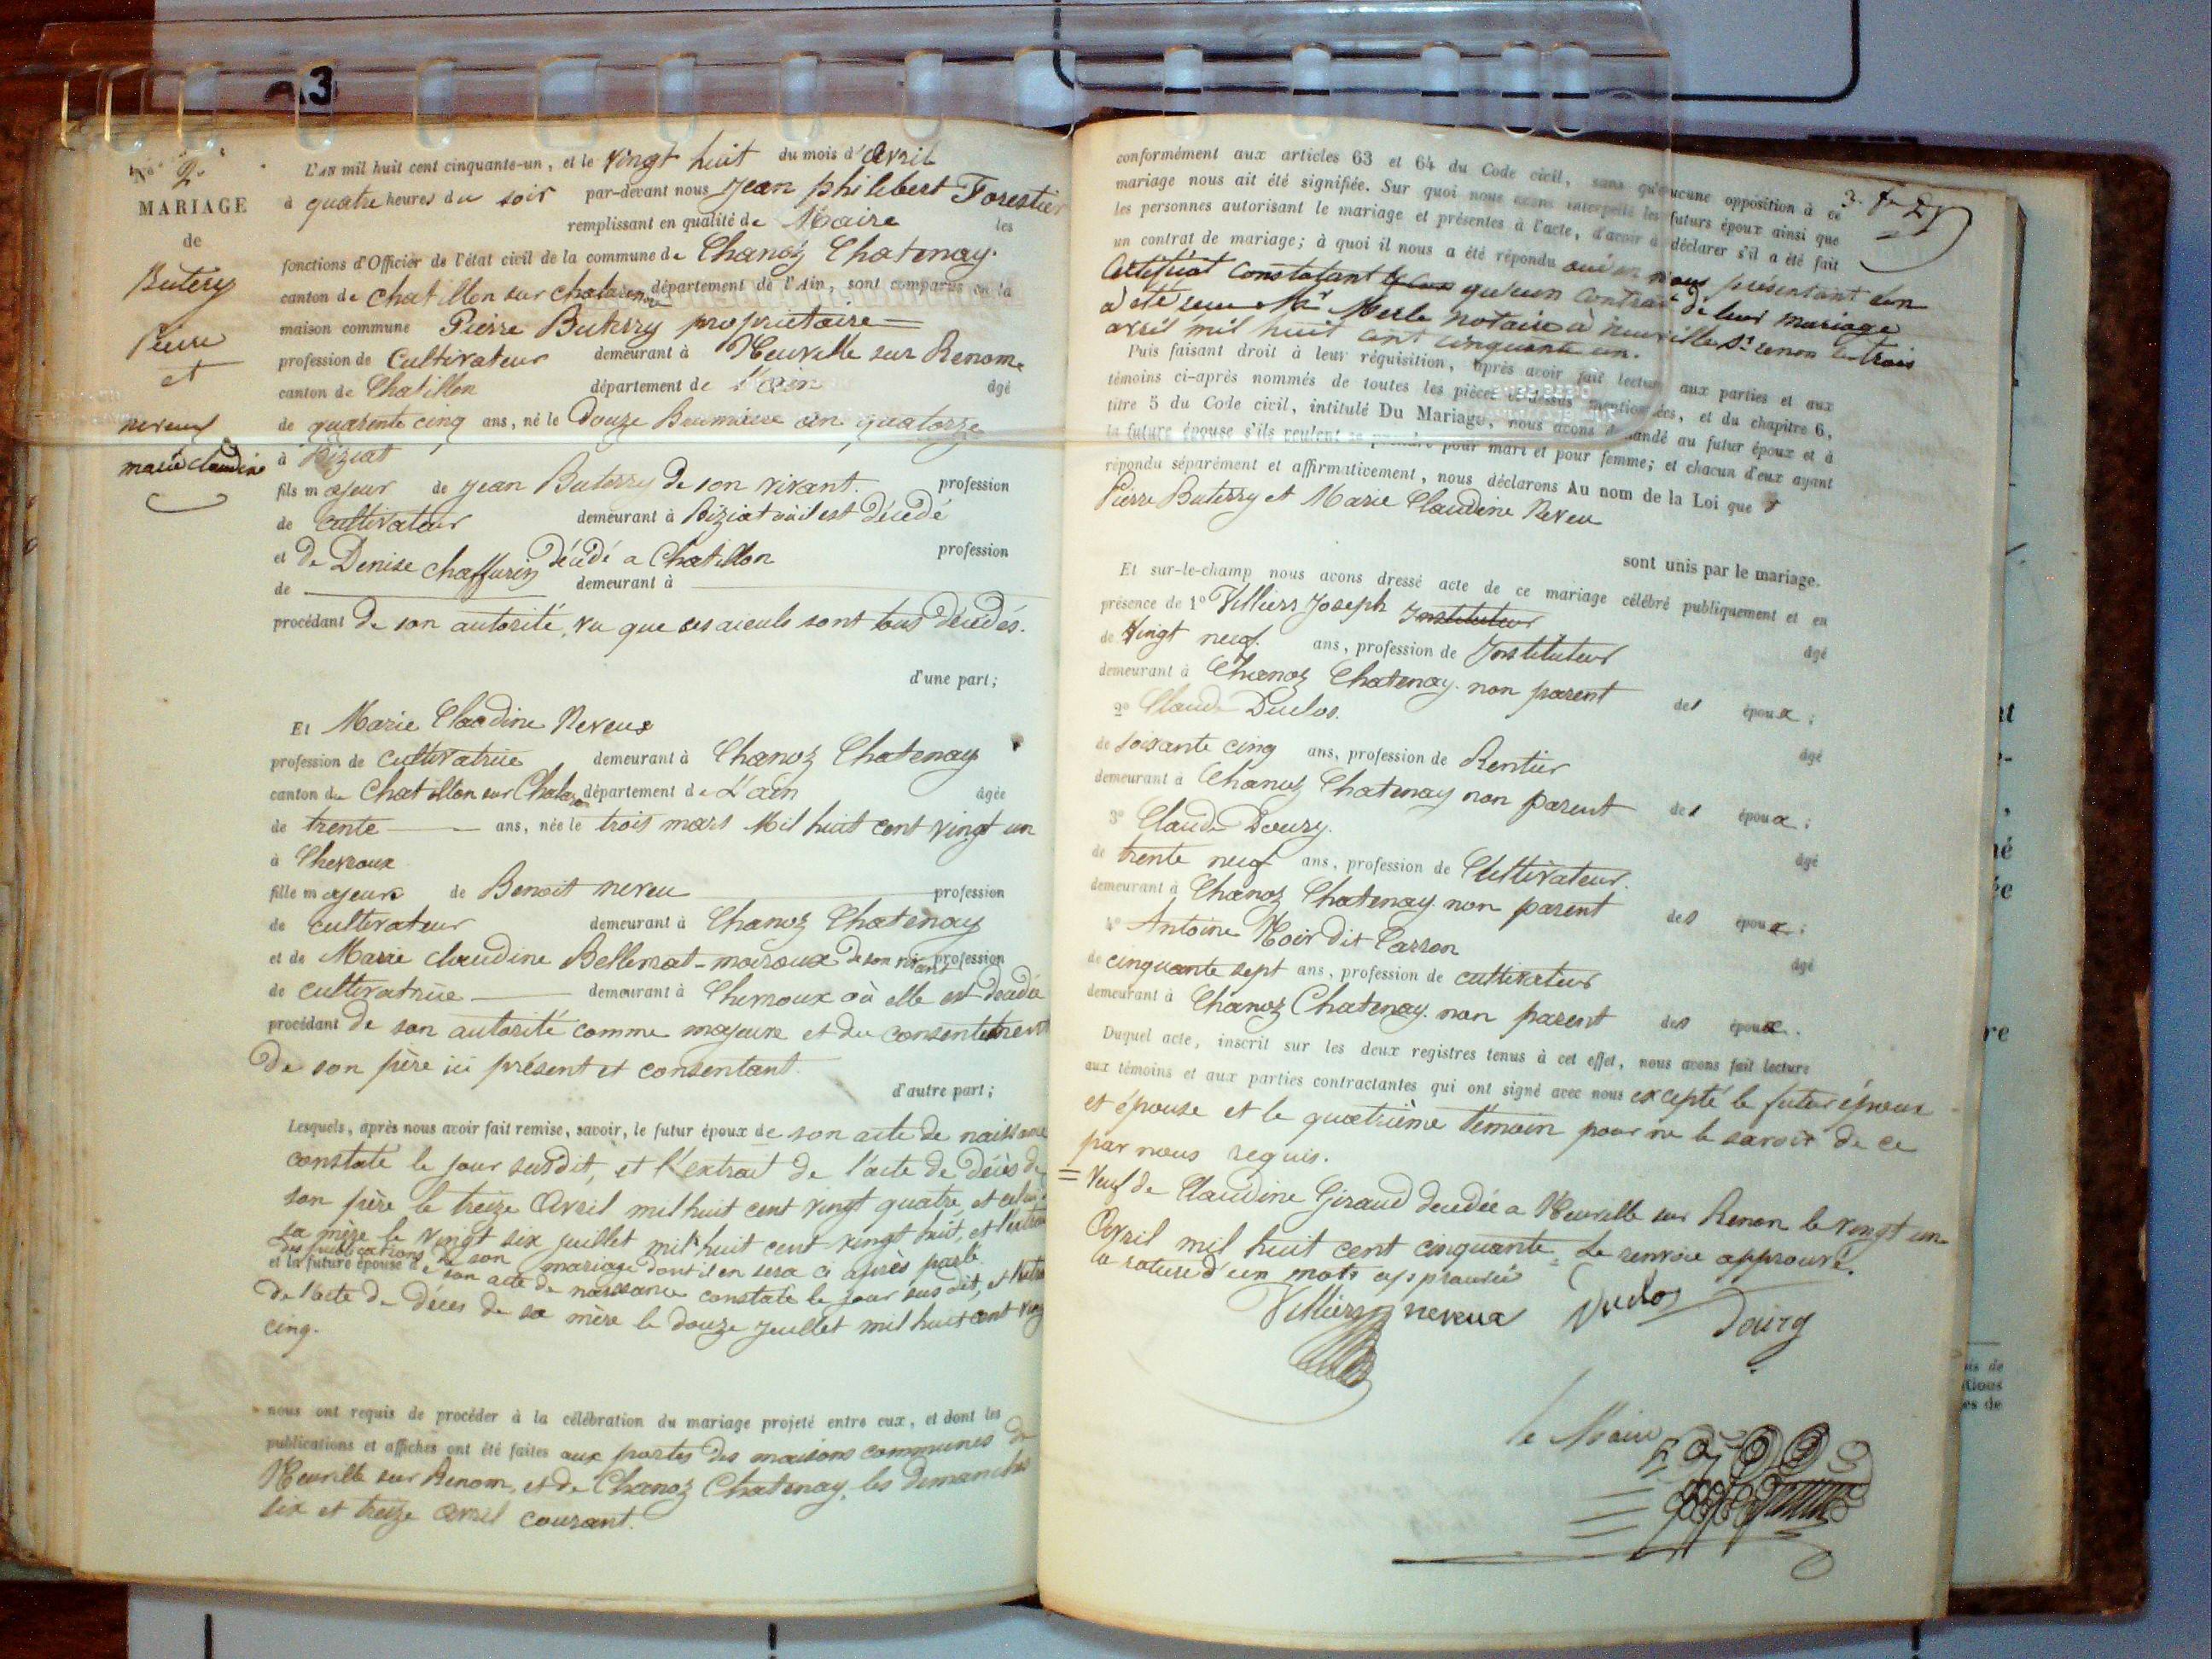 3
No 2.
MARIAGE
de
Butery
Pierre
et
neveux
marie claudine
L'AN mil huit cent cinquante-un, et le Vingt huit du mois d'Avril
à quatre heures du soir par-devant nous Jean philibert Forestier
remplissant en qualité de Maire les
fonctions d'Officier de l'état civil de la commune de Chanoz Chatenay.
canton de Chatillon sur Chalaronne département de l'Ain, sont comparus en la
maison commune Pierre Buterry propriétaire =
profession de Cultivateur demeurant à Neuville sur Renom
canton de Chatillon département de l'ain âgé
de quarente cinq ans, né le Douze Brumaire an quatorze
à Biziat
fils majeur de Jean Buterry de son vivant. profession
de Cultivateur demeurant à Biziat où il est Décédé
et de Denise Chaffurin Décédé a Chatillon profession
de demeurant à
procédant De son autorité, vu que ses aieuls sont tous Décédés.
d'une part;
Et Marie Claudine Neveux
profession de Cultivatrice demeurant à Chanoz Chatenay
canton de Chatillon sur Chala département de L'ain âgée
de trente ans, née le trois mars Mil huit cent vingt un
à Chevroux
fille majeure de Benoit neveu profession
de cultivateur demeurant à Chanoz Chatenay
et de Marie claudine Bellemat-moiroux De son vivant profession
de cultivatrice demeurant à Chevroux où elle est Décédée
procédant De son autorité comme majeure et du consentement
De son père ici présent et consentant.
d'autre part;
Lesquels, après nous avoir fait remise, savoir, le futur époux de son acte de naissance
constaté le jour susdit, et l'extrait de l'acte de Décès de
son père le treize Avril mil huit cent vingt quatre, et celui
sa mère le Vingt six juillet mil huit cent vingt huit, et l'extrait
des publications de son mariage dont il en sera ci après parlé.
et la future épouse de son acte de naissance constaté le jour sus dit, et l'extrait
De l'acte De Décès de sa mère le douze Juillet mil huit cent ving
cinq.
nous ont requis de procéder à la célébration du mariage projeté entre eux, et dont les
publications et affiches ont été faites aux portes des maisons communes de
Neuville sur Renom, et de Chanoz Chatenay, les Dimanches
six et treize Avril courant.
conformément aux articles 63 et 64 du Code civil, sans qu'aucune opposition à ce
mariage nous ait été signifiée. Sur quoi nous avons interpellé les futurs époux ainsi que
les personnes autorisant le mariage et présentes à l'acte, d'avoir à déclarer s'il a été fait
un contrat de mariage; à quoi il nous a été répondu oui en nous présentant un
Certificat Constatant qu'un Contrat de leur mariage
à été reçu Mr Merle notaire à neuville sr renon le trois
avril mil huit cent cinquante un.
Puis faisant droit à leur réquisition, après avoir fait lecture aux parties et aux
témoins ci-après nommés de toutes les pièces ci-dessus mentionnées, et du chapitre 6,
titre 5 du Code civil, intitulé Du Mariage, nous avons demandé au futur époux et à
la future épouse s'ils veulent se prendre pour mari et pour femme; et chacun d'eux ayant
répondu séparément et affirmativement, nous déclarons Au nom de la Loi que
Pierre Buterry et Marie Claudine Neveu
sont unis par le mariage.
Et sur-le-champ nous avons dressé acte de ce mariage célébré publiquement et en
présence de 1o Villiers Joseph Instituteur
de Vingt neuf. ans, profession de Instituteur âgé
demeurant à Chanoz Chatenay. non parent des époux;
2o Claude Duclos.
de soixante cinq ans, profession de Rentier âgé
demeurant à Chanoz Chatenay non parent des époux;
3o Claude Doury.
de trente neuf ans, profession de Cultivateur. âgé
demeurant à Chanoz Chatenay non parent des époux;
4o Antoine Noir dit Carron
de cinquante sept ans, profession de cultivateur âgé
demeurant à Chanoz Chatenay. non parent des époux.
Duquel acte, inscrit sur les deux registres tenus à cet effet, nous avons fait lecture
aux témoins et aux parties contractantes qui ont signé avec nous excepté le futur époux
et épouse et le quatrième témoin pour ne le savoir de ce
par nous requis.
= Veuf de Claudine Giraud décédée a Neuville sur Renon le vingt un
Avril mil huit cent cinquante = Le renvoie approuvé.
la rature d'un mots approuvée
Villiers neveux Duclos
Doury
le Maire